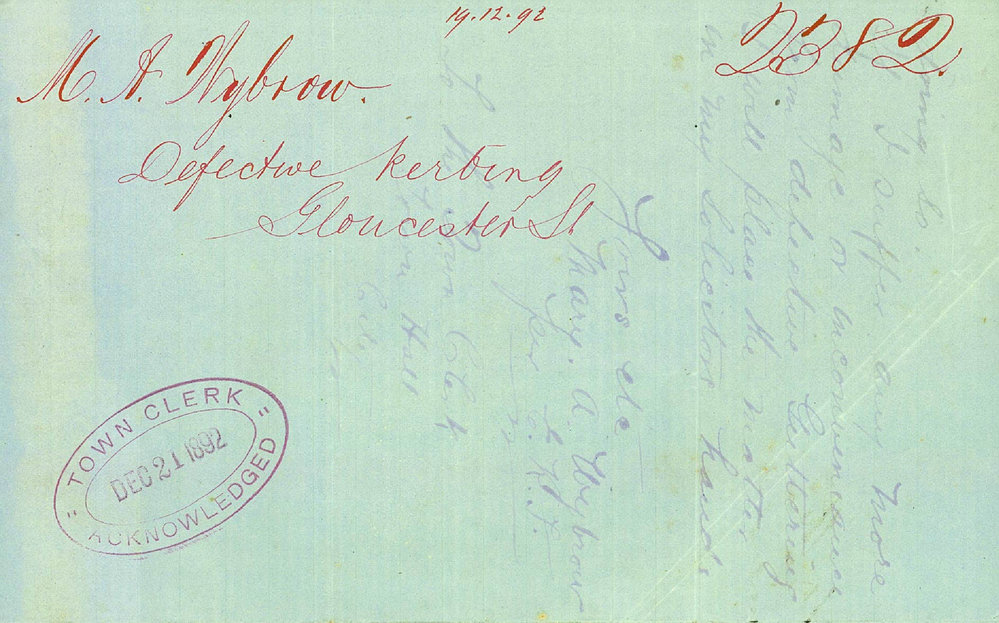 19.12.92
2382.
M. A. Nybrow.
Defective kerbing
Gloucester St
TOWN CLERK
DEC 21 1892
ACKNOWLEDGED
I suffer any more
or inconvenience
defective Guttering
place the matter
in my Solicitors hands
Yours etc
Mary. A Wybrow
per
To the Town Clerk
Town Hall
City